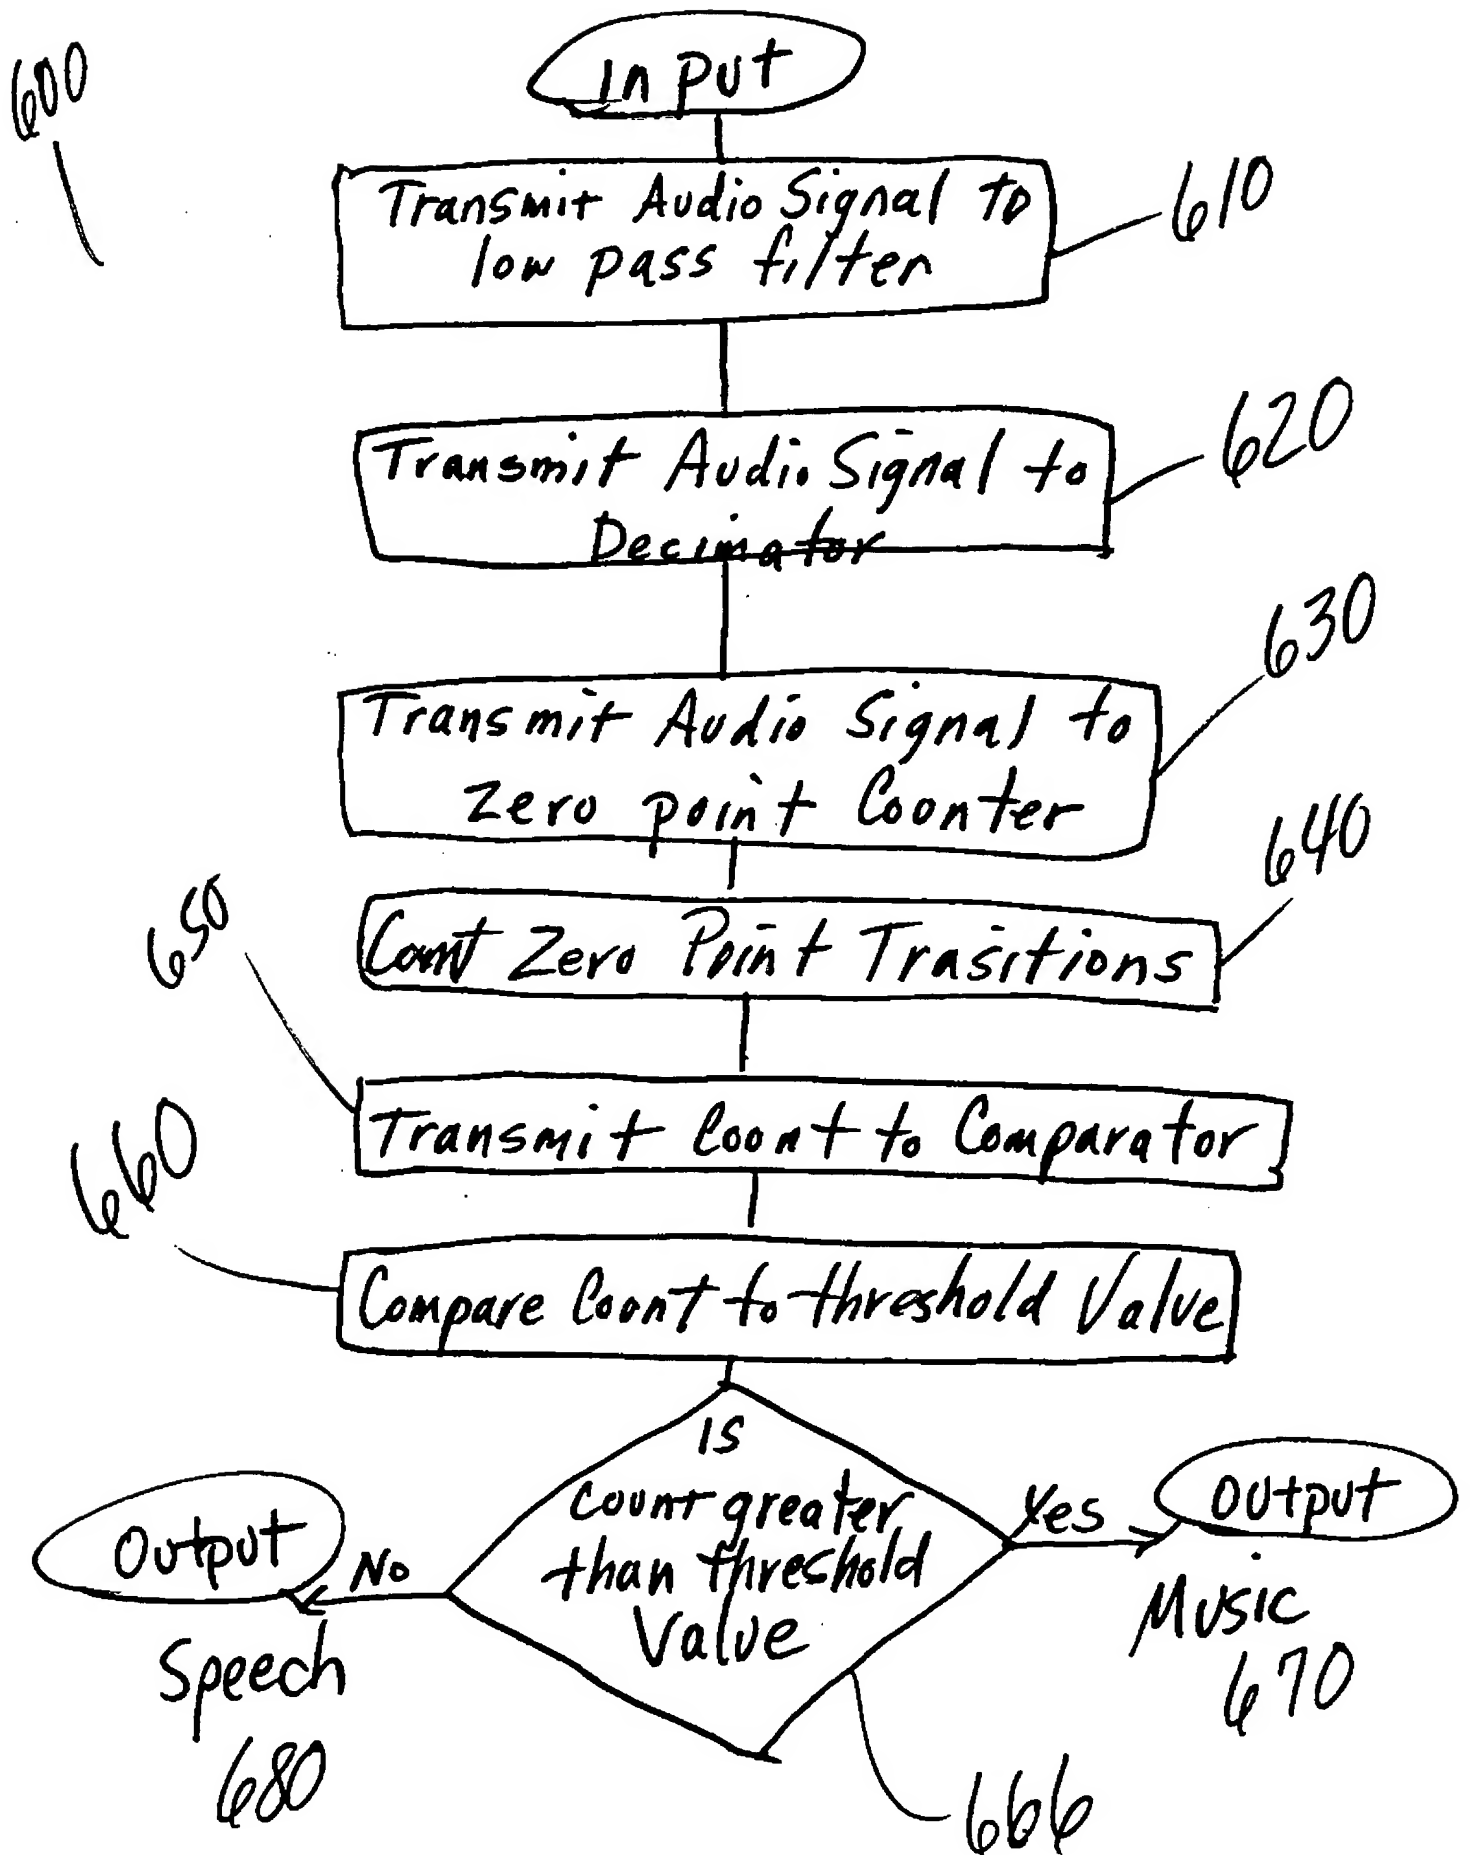 600
Input
Transmit Audio Signal to
low pass filter
610
Transmit Audio Signal to
Decimator
620
Transmit Audio Signal to
Zero point Counter
630
Count Zero Point Trasitions
640
650
Transmit Count to Comparator
660
Compare Count to threshold Value
is
count greater
than threshold
Value
666
Yes
Output
Music
670
No
Output
Speech
680